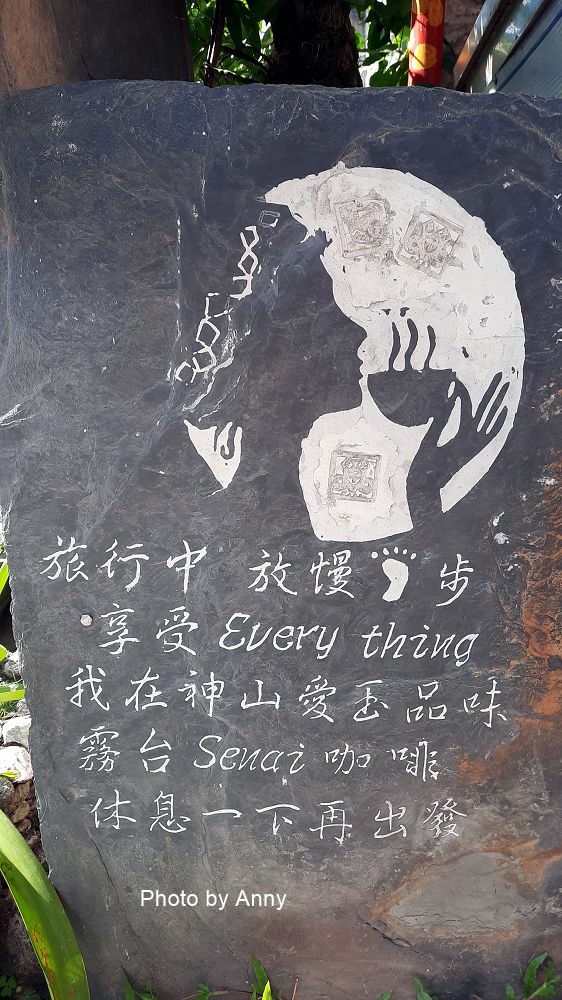 旅行中 放慢 步
享受 Every thing
我在神山愛玉品味
霧台 Senai 咖啡
休息一下再出發
Photo by Anny